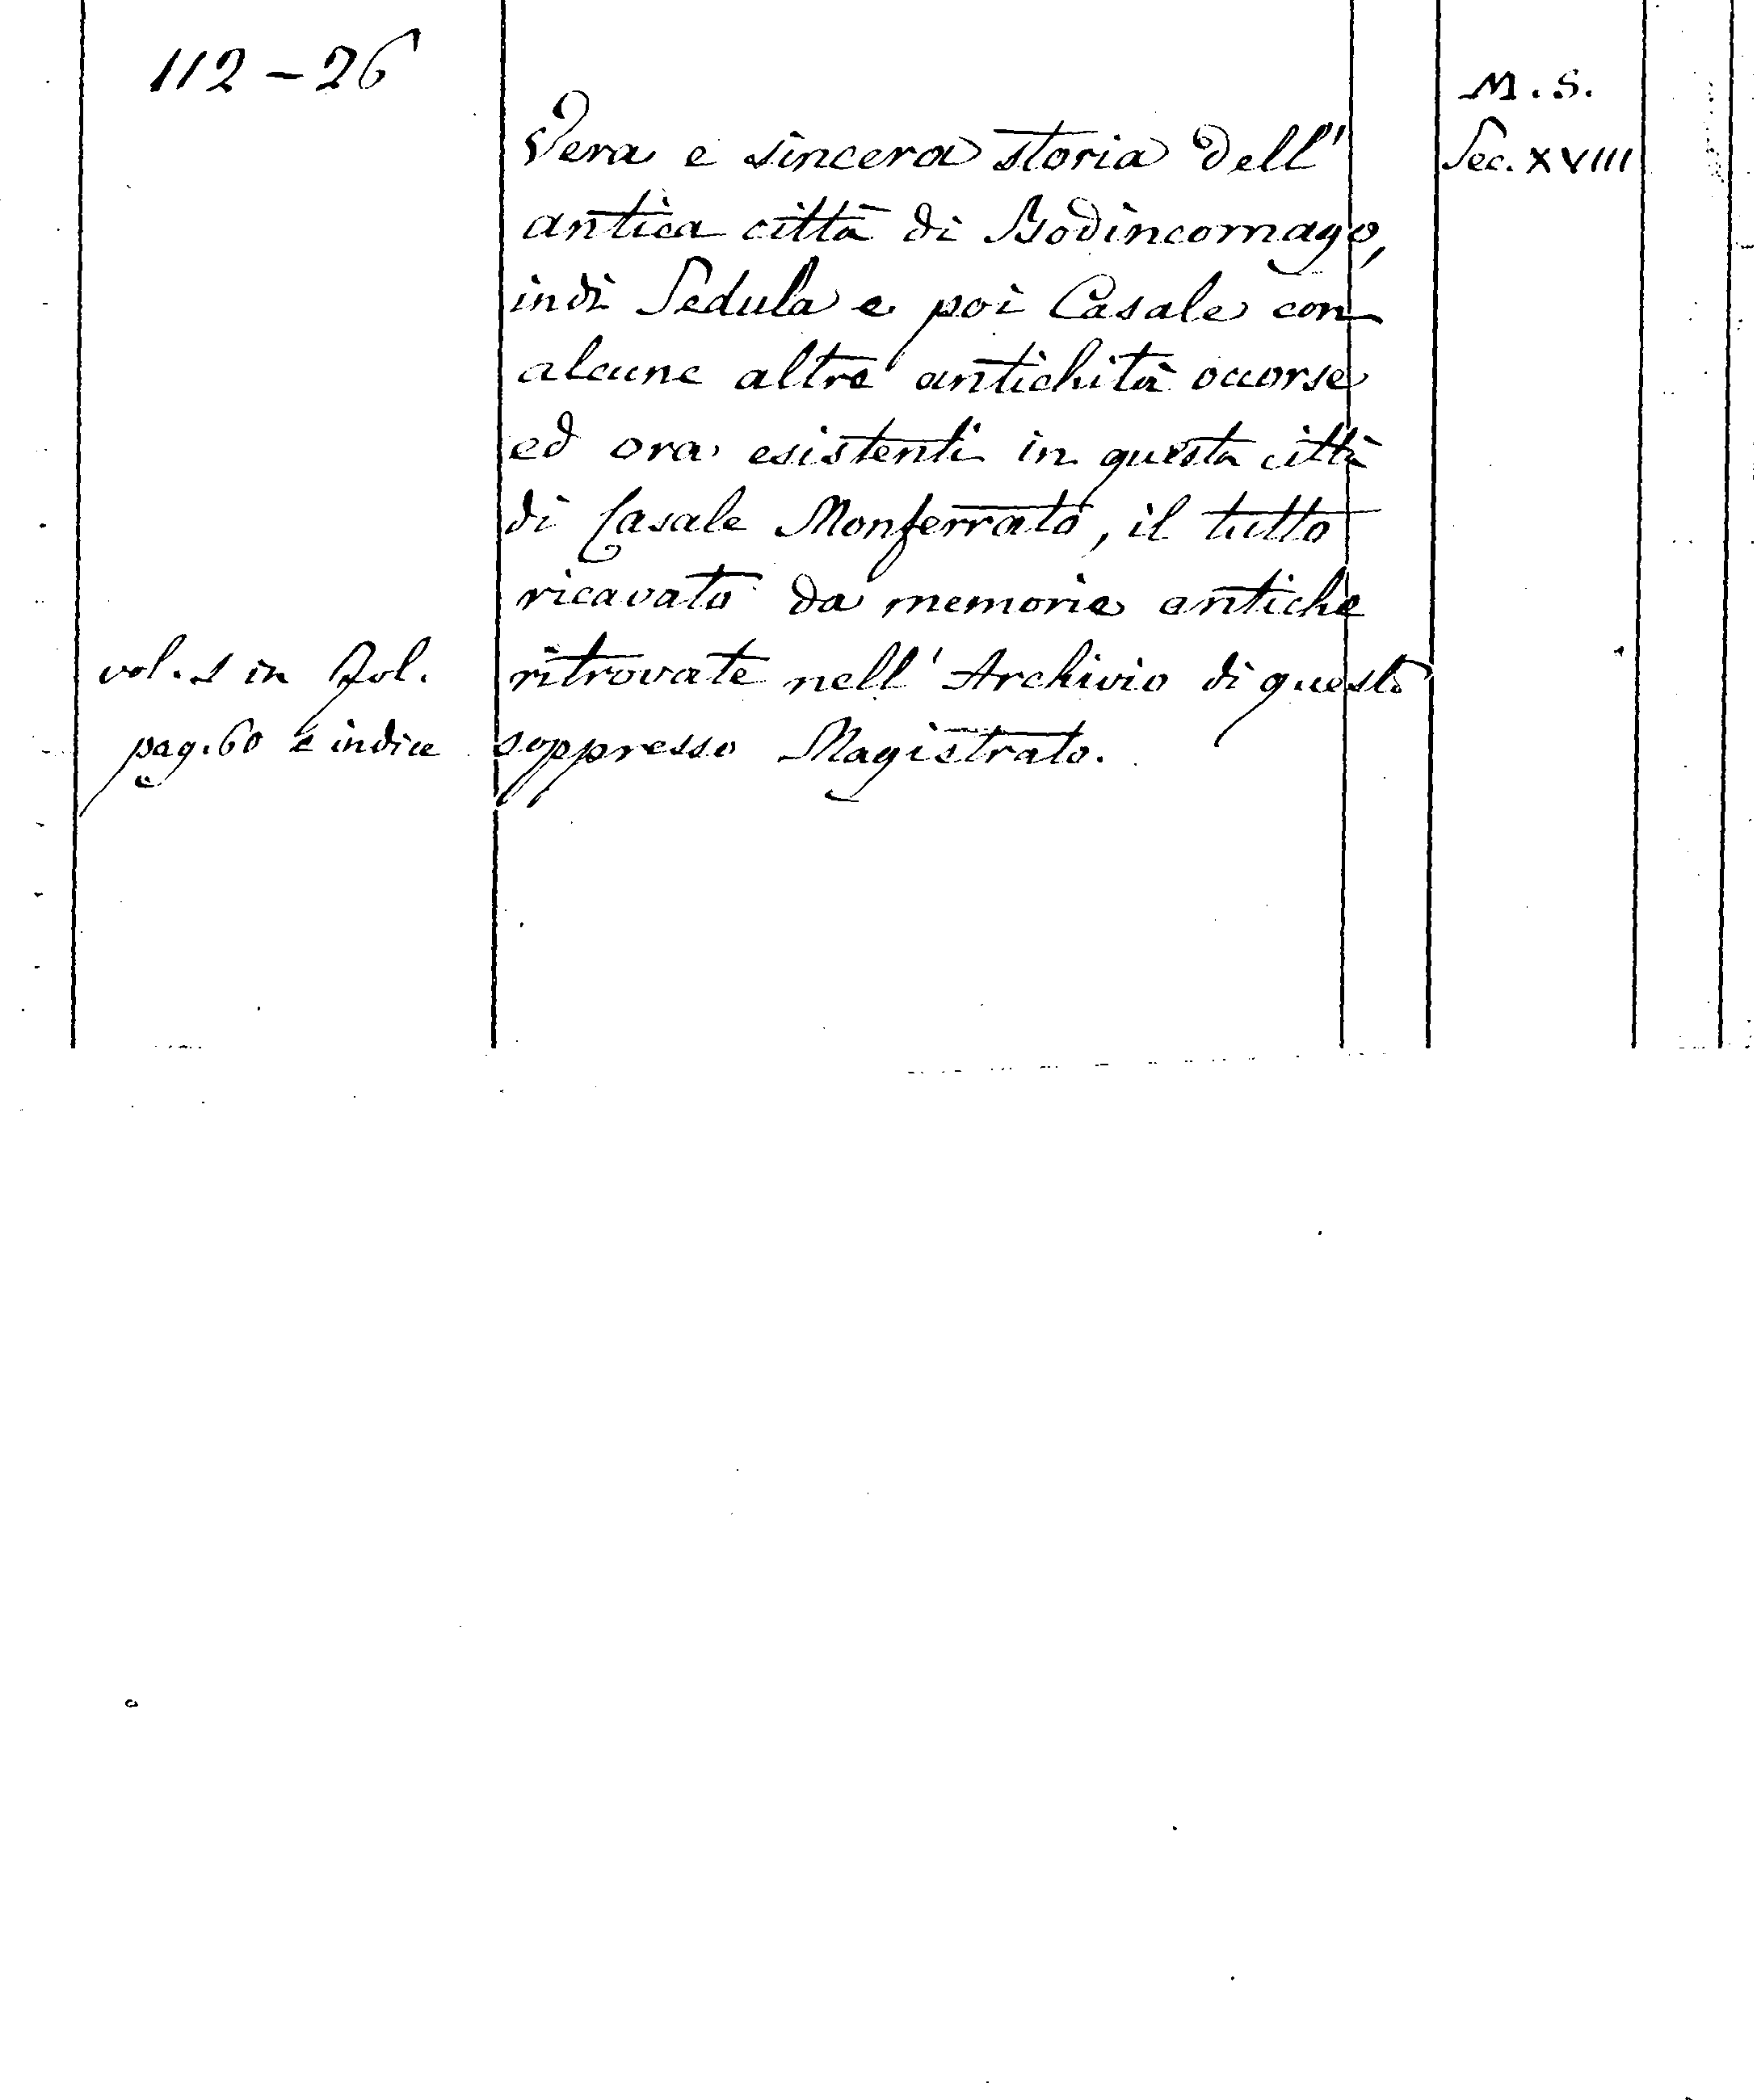 112 - 26
M. S.
Sec. XVIII
Vera e sincera storia dell'
antica città di Bodincomago,
indi Sedula e poi Casale con
alcune altre antichità occorse
ed ora esistenti in questa città
di Casale Monferrato, il tutto
ricavato da memorie antiche
ritrovate nell' Archivio di questo
soppresso Magistrato.
vol. 1 in fol.
pag. 60 e indice